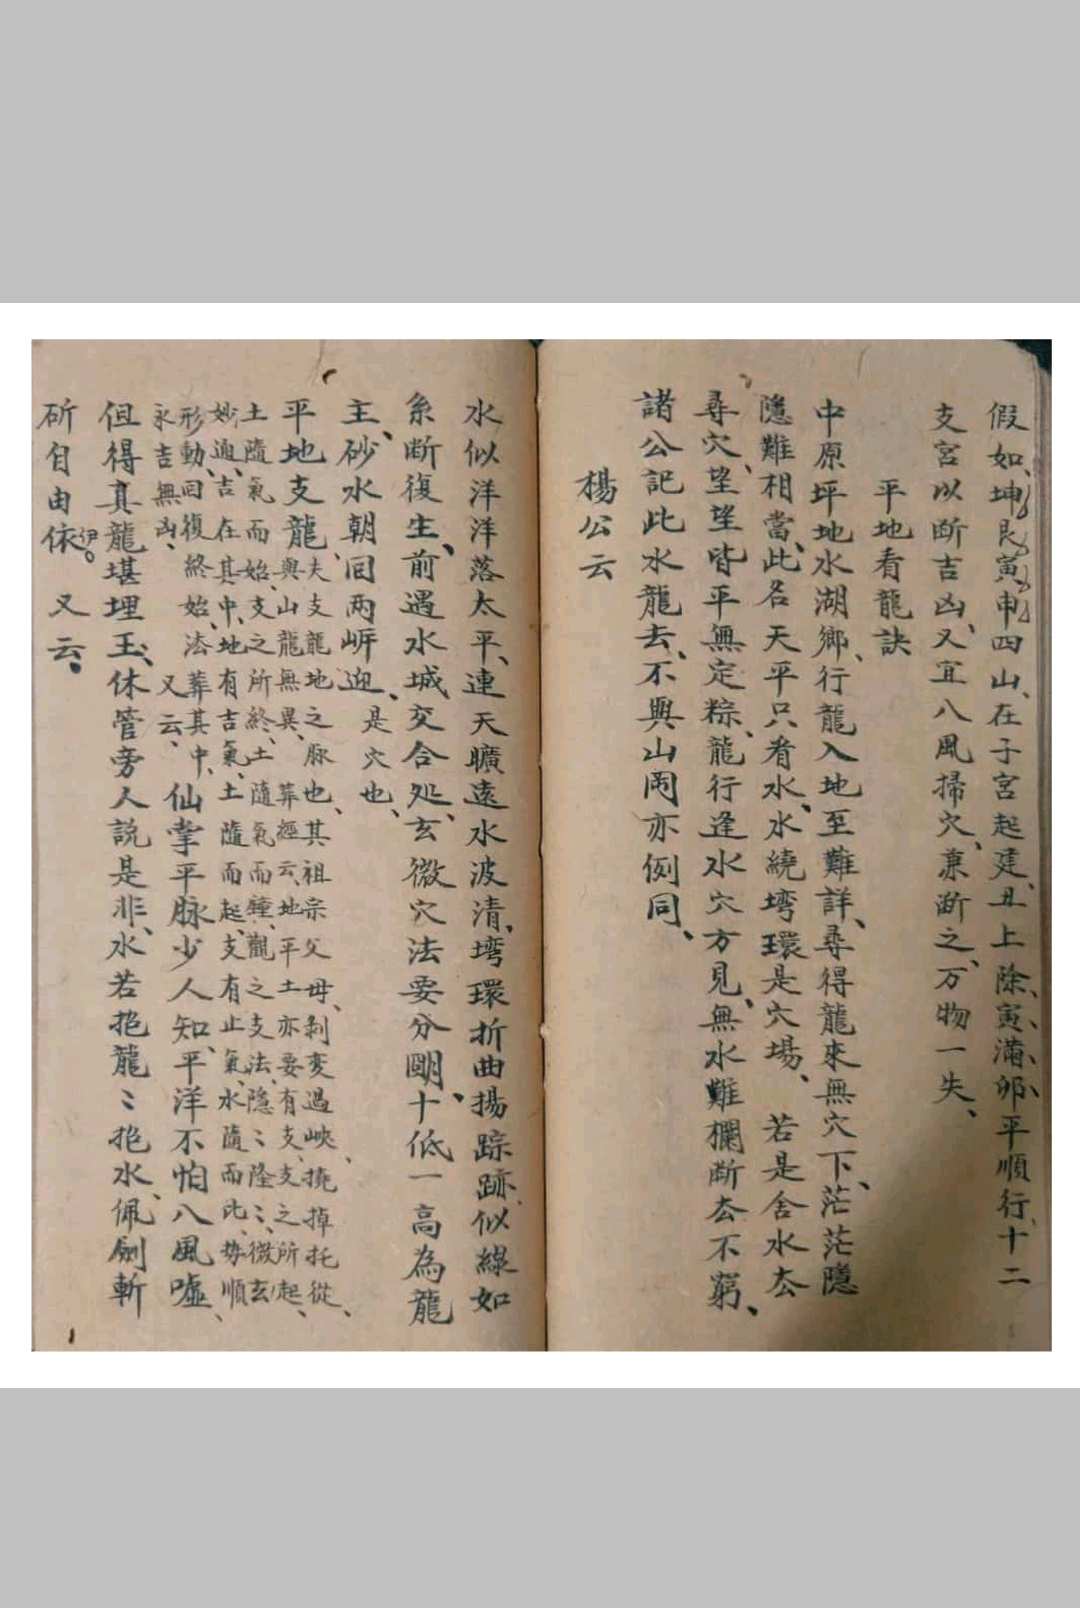 假如、坤艮寅申四山、在子宮起建、丑上除、寅滿、卯平順行、十二
支宮以断吉凶、又宜八風掃穴、兼断之、万物一失、
平地看龍訣
中原坪地水湖鄉、行龍入地至難詳、尋得龍來無穴下、茫茫隱
隱難相當、此名天平只看水、水繞塆環是穴場、若是舍水去
尋穴、望望皆平無定粽、龍行逢水穴方見、無水難欄断去不窮、
諸公記此水龍去、不與山岡亦例同、
楊公云
水似洋洋落太平、連天曠遠水波清、塆環折曲揚踪跡、似線如
糸断復生、前遇水城、交合处、玄微穴法要分明、十低一高為龍
主、砂水朝回两岍迎、是穴也、
平地支龍、夫支龍地之脉也、其祖宗父母、剥变過峽、撓掉托從、
與山龍無異、葬經云、地平土亦要有支、支之所起、
土隨氣而始、支之所終、土隨氣而鐘、觀之支法、隱〻隆〻、微玄
妙迪、吉在其中、地有吉氣、土隨而起、支有止氣、水隨而比、势順
形動、回復終始、法葬其中、
永吉無凶、又云、仙掌平脉少人知、平洋不怕八風嘘、
但得真龍堪埋玉、休管旁人說是非、水若抱龍〻抱水、佩劍斬
斫自由依伊。又云、